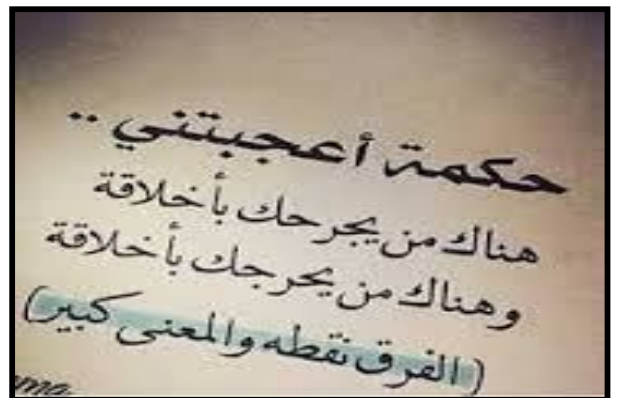 حكمة أعجبتني ..
هناك من يجرحك بأخلاقة
وهناك من يحرجك بأخلاقة
( الفرق نقطه والمعنى كبير )